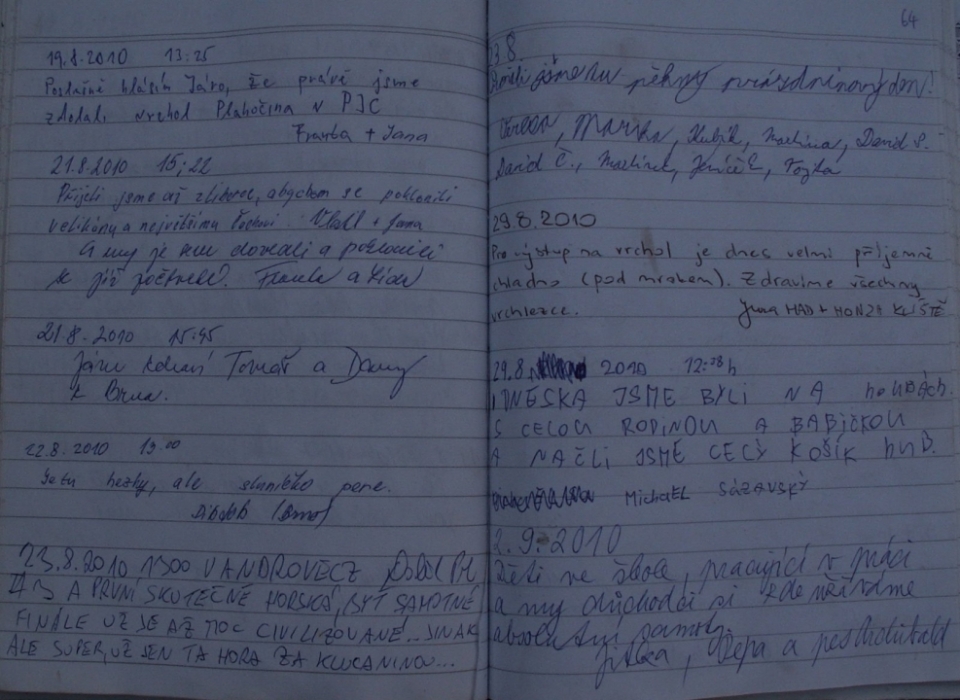 19.8.2010 13:25
Poslušně hlásím Járo, že právě jsme
zdolali vrchol Plahočina v PJC
Franta + Jana
21.8.2010 15:22
Přijeli jsme až z Liberce, abychom se poklonili
velikánu a největšímu Čechovi + Jana
A my je sem dovezli a poklonili
se již počtvrté. Franta a
21.8.2010 15:45
Járu Tomáš a Dany
z Brna.
22.8.2010 13.00
Je tu hezky, ale sluníčko pere.
(Brno)
23.8.2010 1300 VANDROVECZ
A PRVNÍ SKUTEČNĚ HORSKÁ, BYŤ SAMOTNÉ
FINÁLE UŽ JE AŽ MOC CIVILIZOVANÉ... JINAK
ALE SUPER, UŽ JEN TA HORA ZA KLUCANINOU...
64
23.8.
měli jsme tu pěkný prázdninový den!
Tereza, Marika, Kubík, Martina, David S.
David Č., Martínek, Jeníček, Vojta
29.8.2010
Pro výstup na vrchol je dnes velmi příjemně
chladno (pod mrakem). Zdravíme všechny
vrcholezce. Jana HAD + HONZA KLIŠTĚ
29.8. 2010 12:28 h
DNESKA JSME BYLI NA hoUBÁCh.
S CELOU RODINOU A BABIČKOU
A NAČLI JSME CELÝ KOŠÍK huB.
MichaEL SÁZAVSKÝ
2.9.2010
Děti ve škole, pracující v práci
a my důchodci si zde užíváme
absolutní pohody.
Jitka, Pepa a